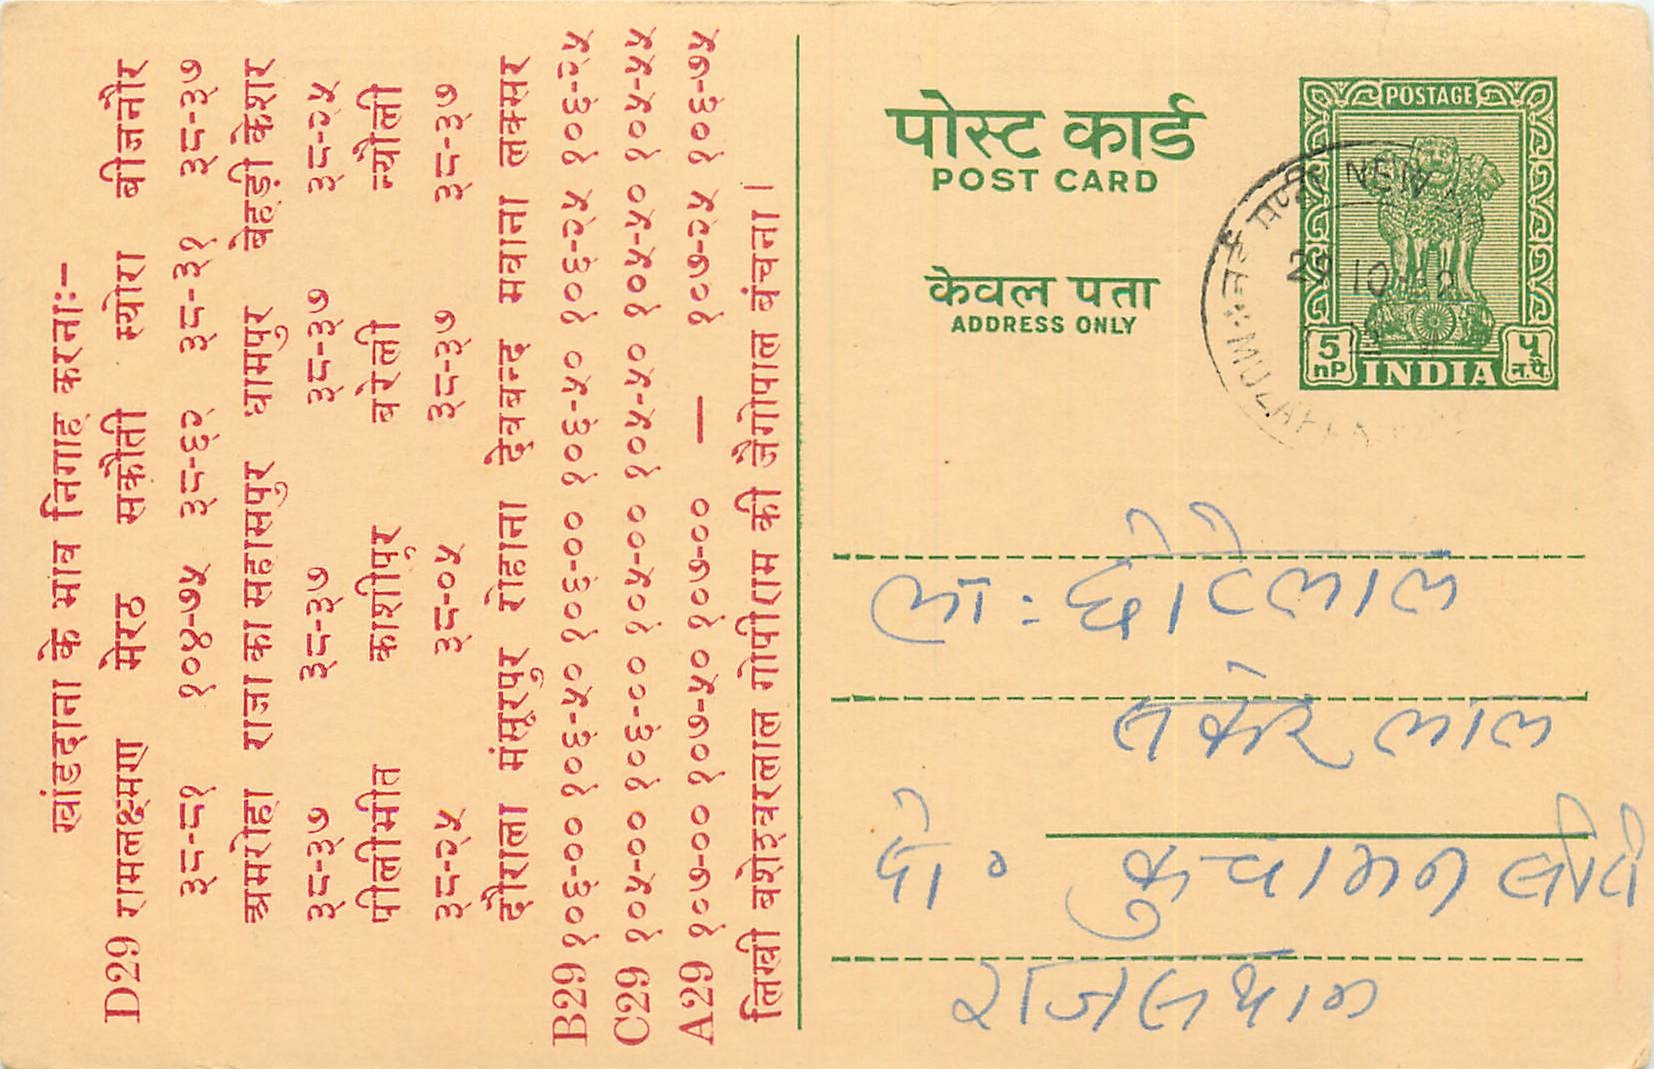 खांडदाना के भाव निगाह करनाः-
D29 रामलक्ष्मण मेरठ सकौती स्योरा बीजनौर
३८-८१ १०४-७५ ३८-६२ ३८-३१ ३८-३७
अमरोहा राजा का सहासपुर धामपुर बेहड़ी केशर
३८-३७ ३८-३७ ३८-३७ ३८-२५
पीलीभीत काशीपुर बरेली न्यौली
३८-२५ ३८-०५ ३८-३७ ३८-३७
दौराला मंसूरपुर रोहाना देवबन्द मवाना लक्सर
B29 १०६-०० १०६-५० १०६-०० १०६-५० १०६-२५ १०६-२५
C29 १०५-०० १०६-०० १०५-०० १०५-५० १०५-५० १०४-५५
A29 १०७-०० १०७-५० १०७-०० — १०७-२५ १०६-७५
लिखी बशेश्वरलाल गोपीराम की जैगोपाल बंचना।
पोस्ट कार्ड
POST CARD
केवल पता
ADDRESS ONLY
POSTAGE
5 nP INDIA ५ न.पै.
नई मण्डी NEW
10
MUZAFFA
ला: छोटेलाल
लाल
पो० कुचामन सीटी
राजस्थान